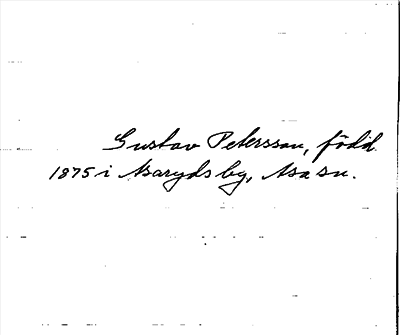 Gustav Petersson, född
1875 i Asaryds by, Asa sn.